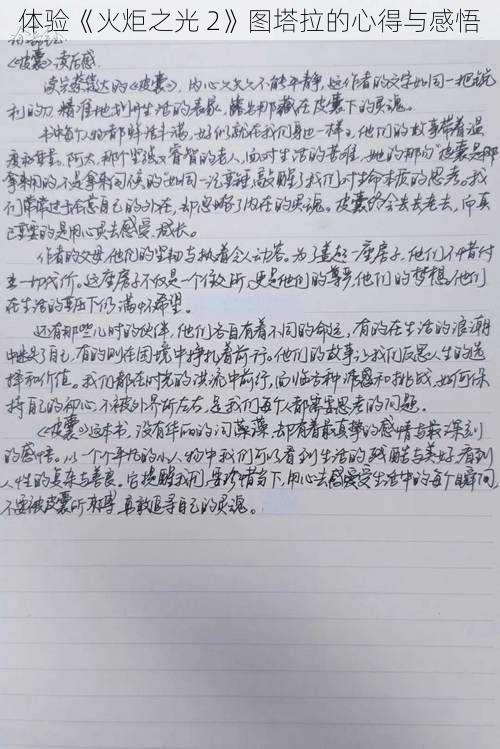 体验《火炬之光 2》图塔拉的心得与感悟
《皮囊》读后感
读完蔡崇达的《皮囊》,内心久久不能平静,这作者的文字如同一把锐
利的刀 精准地划开生活的表象,露出那藏在皮囊下的灵魂。
书中每个人物都鲜活丰满,好似就在我们身边一样。他们的故事带着温
阿太,那个坚强又睿智的老人,面对生活的苦难,她的那句"皮囊是那
拿来用的,不是拿来伺候的"如同一记重锤敲醒了我们对生命本质的思考。我
们常常过于在意自己的外在,却忽略了内在的灵魂。皮囊终会老去,而真
正重要的是用心灵去感受、成长。
作者的父母,他们的坚韧与执着令人动容。为了盖起一座房子,他们不惜付
出一切代价。这座房子不仅是一个住所,更是他们的尊严,他们的梦想,他们
在生活的重压下仍满怀希望。
还有那些儿时的伙伴,他们各自有着不同的命运,有的在生活的浪潮
中迷失了自己,有的则在困境中挣扎着前行。他们的故事让我们反思人生的选
择和价值。我们都在时光的洪流中前行,面临各种诱惑和挑战,如何保
持自己的初心,不被外界所左右,是我们每个人都需要思考的问题。
《皮囊》这本书,没有华丽的词藻,却有着最真挚的感情与最深刻
的感悟。从一个个平凡的小人物中我们可以看到生活的残酷与美好,看到
人性的复杂与善良。它提醒我们,要珍惜当下,用心去感受生活中的每个瞬间,
不要被皮囊所束缚,勇敢追寻自己的灵魂。